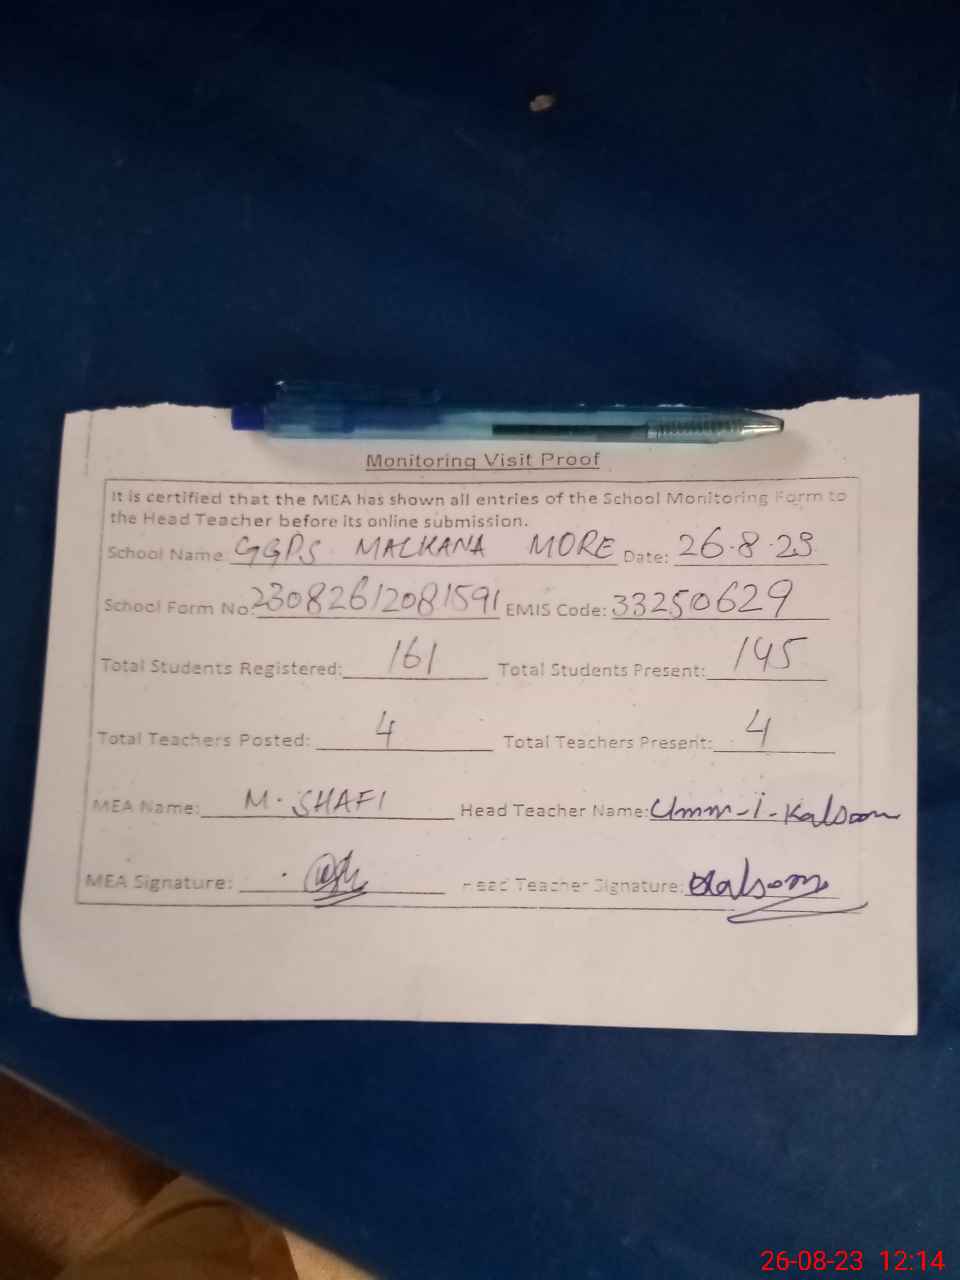 Monitoring Visit Proof
It is certified that the MEA has shown all entries of the School Monitoring Form to
the Head Teacher before its online submission.
School Name GGPS MALKANA MORE Date: 26.8.23
School Form No: 23082612081591 EMIS Code: 33250629
Total Students Registered: 161 Total Students Present: 145
Total Teachers Posted: 4 Total Teachers Present: 4
MEA Name: M. SHAFI Head Teacher Name: Umm-i-Kalsoom
MEA Signature: Head Teacher Signature: Kalsoom
26-08-23 12:14